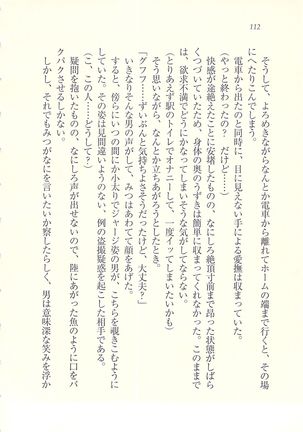 112
そうして、よろめきながらなんとか電車から離れてホームの端まで行くと、その場
にへたりこんでしまう。
電車から出たのと同時に、目に見えない手による愛撫は収まっていた。
（やっと……終わったの？ だけど……）
快感が途絶えたことに安堵したものの、なにしろ絶頂寸前まで昂った状態がしばら
くつづいていたため、身体の奥のうずきは簡単に収まってくれなかった。このままで
は、欲求不満でどうにかなってしまいそうな気がしてならない。
（とりあえず駅のトイレでオナニーして、一度イッてしまいたいかも）
そう思いながら、なんとか立ちあがろうとしたとき。
「グフフ……ずいぶんと気持ちよさそうだったけど、大丈夫？」
いきなりそんな男の声がして、みつはあわてて顔をあげた。
すると、傍らにいつの間にか小太りでジャージ姿の男が、こちらを覗きこむように
していた。その姿は見間違いようのない、例の盗撮疑惑を起こした相手である。
（こ、この人……どうして？）
疑問を抱いたものの、なにしろ声が出せないので、陸にあがった魚のように口をパ
クパクさせるしかない。
しかし、それでもみつがなにを言いたいか察したらしく、男は意味深な笑みを浮か